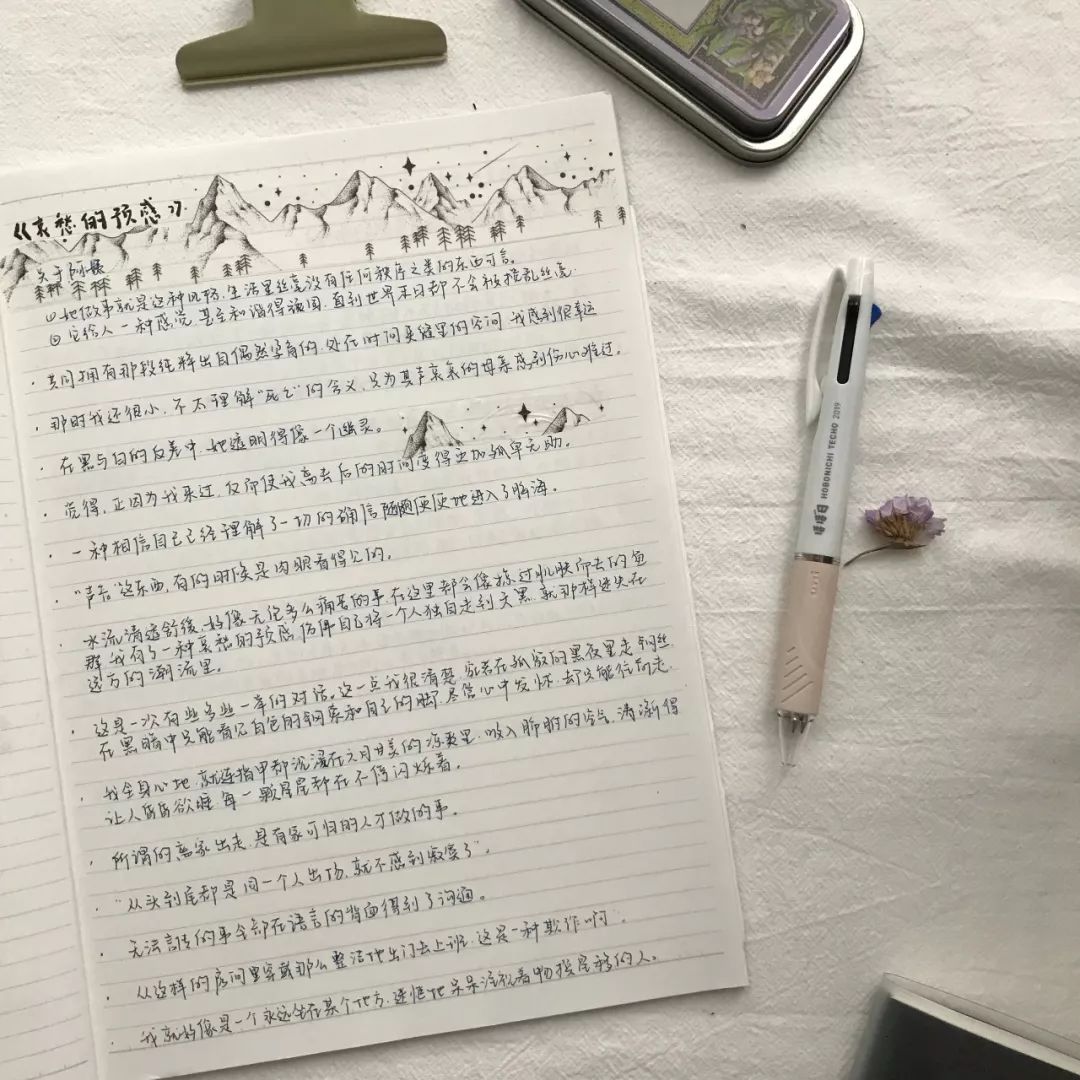 《哀愁的预感》
关于阿姨
①她做事就是这种风格,生活里丝毫没有任何秩序之类的东西可言。
②它给人一种感觉,甚至和谐得顽固,直到世界末日都不会被搅乱丝毫
· 共同拥有那段纯粹出自偶然孕育的,处在时间夹缝里的空间,我感到很幸运
· 那时我还很小,不太理解“死亡”的含义,只为失声哀哀的母亲感到伤心难过。
· 在黑与白的反差中,她透明得像一个幽灵。
· 觉得,正因为我来过,反而使我离去后的时间变得更加孤单无助。
· 一种相信自己已经理解了一切的确信随随便便地进入了脑海。
· “声音”这东西,有的时候是肉眼看得见的。
· 水流清透舒缓,好像无论多么痛苦的事,在这里都会像掠过水映而去的鱼
群,我有了一种哀愁的预感,仿佛自己将一个人独自走到天黑,就那样迷失在
远方的潮流里。
· 这是一次有些多此一举的对话。这一点我很清楚,宛若在孤寂的黑夜里走钢丝
在黑暗中只能看见白色的钢索和自己的脚,尽管心中发怀,却只能往前走
· 我全身心地,就连指甲都沉浸在六月甘美的凉爽里,吸入肺腑的空气,清澈得
让人昏昏欲睡,每一颗星星都在不停闪烁着。
· 所谓的离家出走,是有家可归的人才做的事。
· “从头到尾都是同一个人出场,就不感到寂寞了”。
· 无法言传的事全部在语言的背面得到了沟通。
· 从这样的房间里穿戴那么整洁地出门去上班,这是一种欺诈啊”。
· 我就好像是一个永远坐在某个地方,迷惘地呆呆注视着物换星移的人。
HOBONICHI TECHO 2019